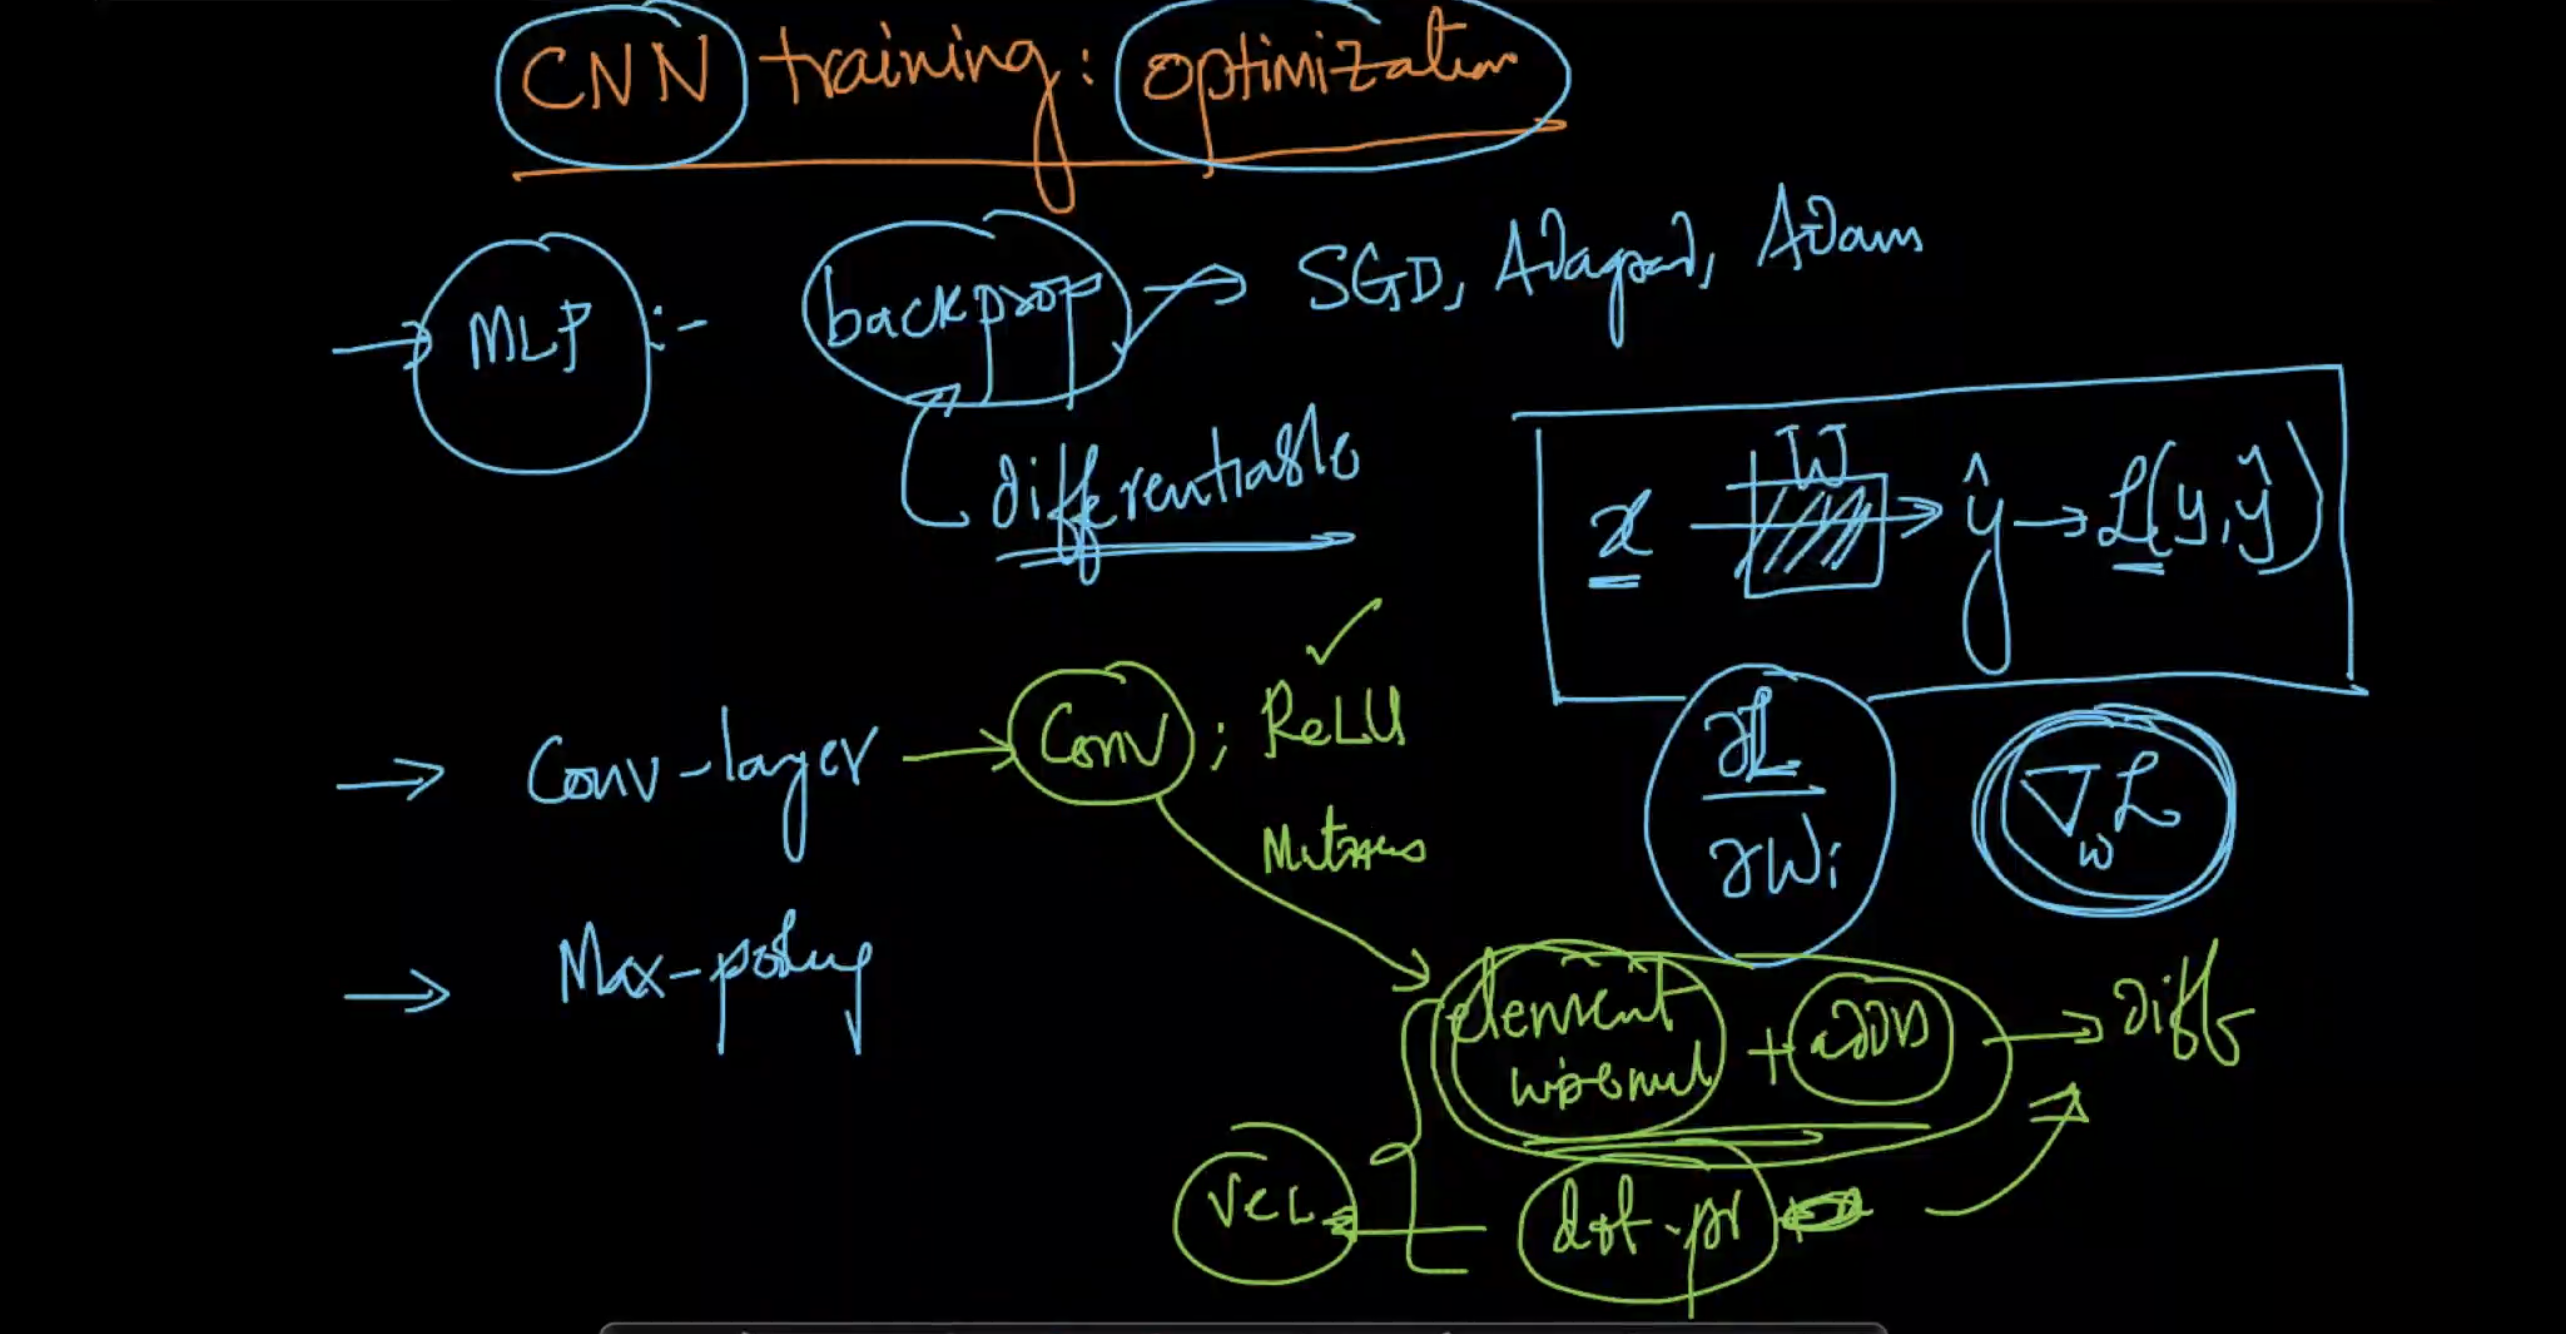 CNN training: optimization
→ MLP :- backprop → SGD, Adagrad, Adam
differentiable
x → W → ŷ → L(y, ŷ)
→ Conv-layer → Conv ; ReLU ✓
∂L/∂Wi
∇w L
→ Max-pooling
element wise mul + addn → diff
Vec
dot-pr